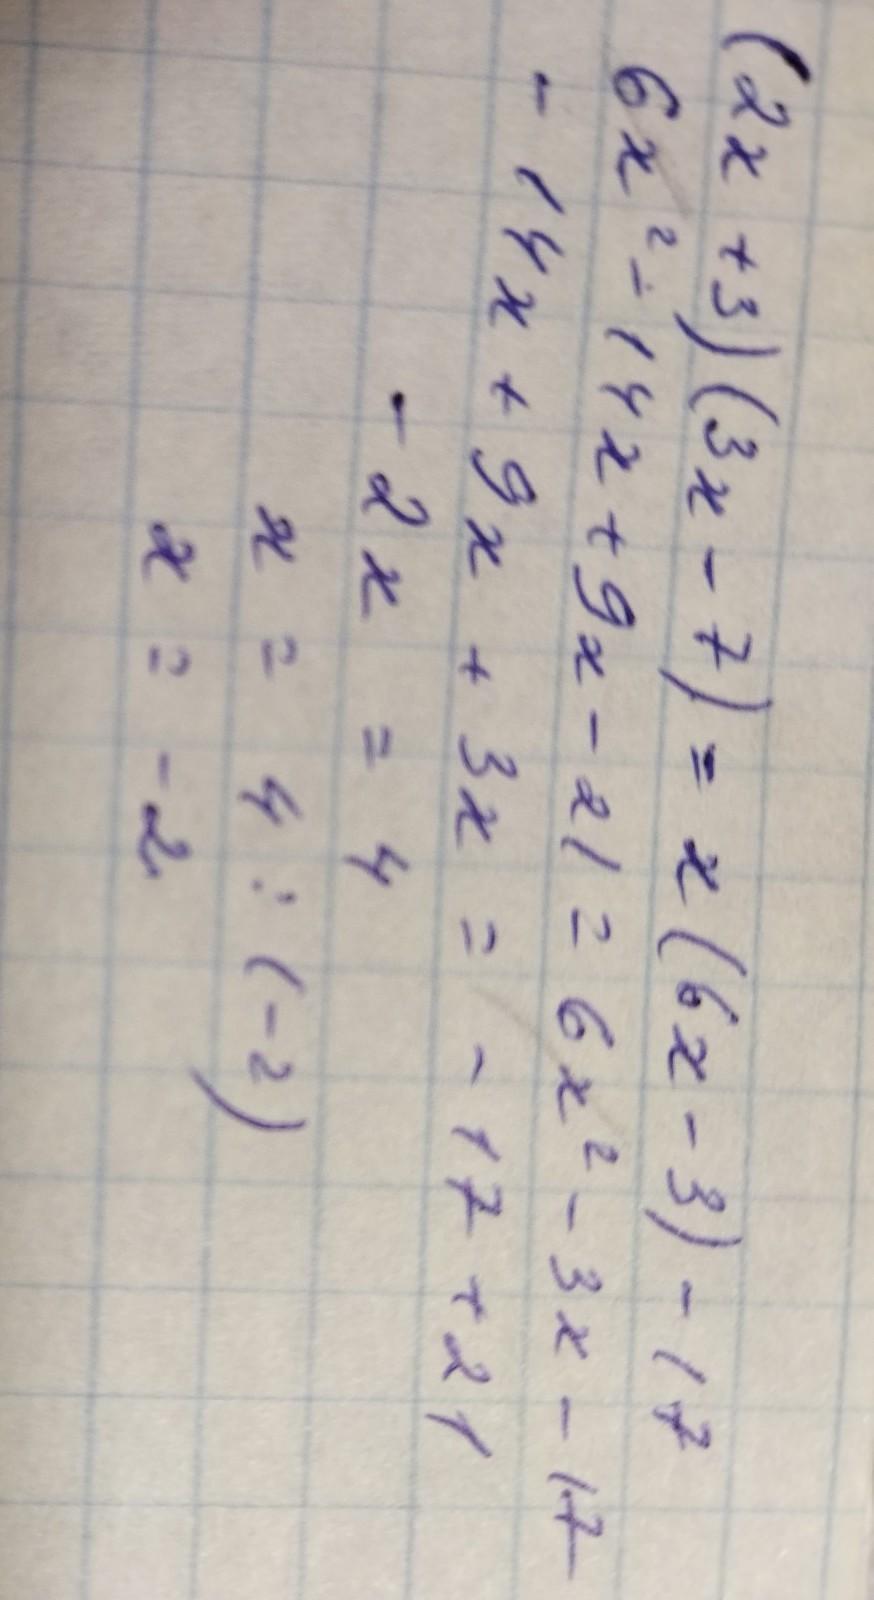 (2x+3)(3x-7)=x(6x-3)-17
6x²-14x+9x-21=6x²-3x-17
-14x+9x+3x=-17+21
-2x=4
x=4:(-2)
x=-2